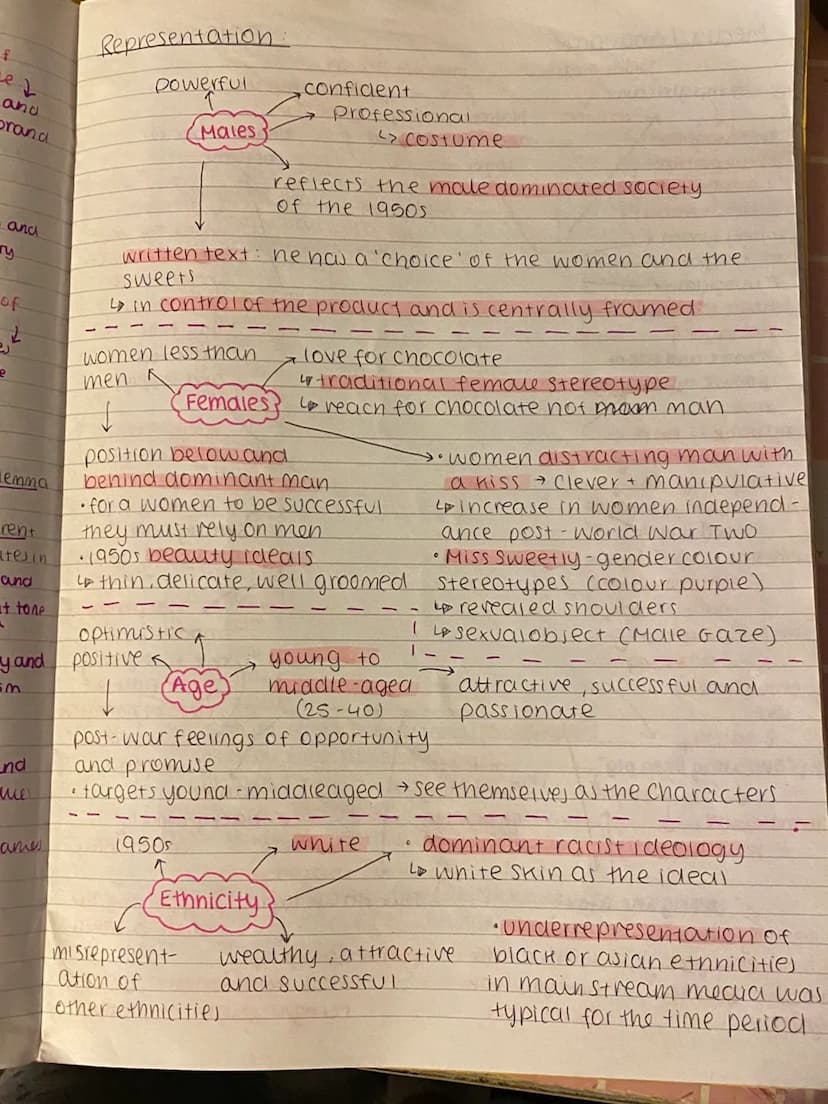 Representation:
powerful
confident
professional
↳ costume
Males
reflects the male dominated society
of the 1950s
written text: he has a 'choice' of the women and the
sweets
↳ in control of the product and is centrally framed
women less than
men
Females
love for chocolate
↳ traditional female stereotype
↳ reach for chocolate not man
position below and
behind dominant man
• for a women to be successful
they must rely on men
• 1950s beauty ideals
↳ thin, delicate, well groomed
• women distracting man with
a kiss → clever + manipulative
↳ increase in women independ-
ance post-World War Two
• Miss Sweetly - gender colour
stereotypes (colour purple)
↳ revealed shoulders
↳ sexual object (Male Gaze)
optimistic
positive
Age
young to
middle-aged
(25-40)
attractive, successful and
passionate
post-war feelings of opportunity
and promise
• targets yound-middleaged → see themselves as the characters
1950s
white
Ethnicity
• dominant racist ideology
↳ white skin as the ideal
misrepresent-
ation of
other ethnicities
wealthy, attractive
and successful
• underrepresentation of
black or asian ethnicities
in mainstream media was
typical for the time period
and
brand
and
of
lemma
rent
and
tone
y and